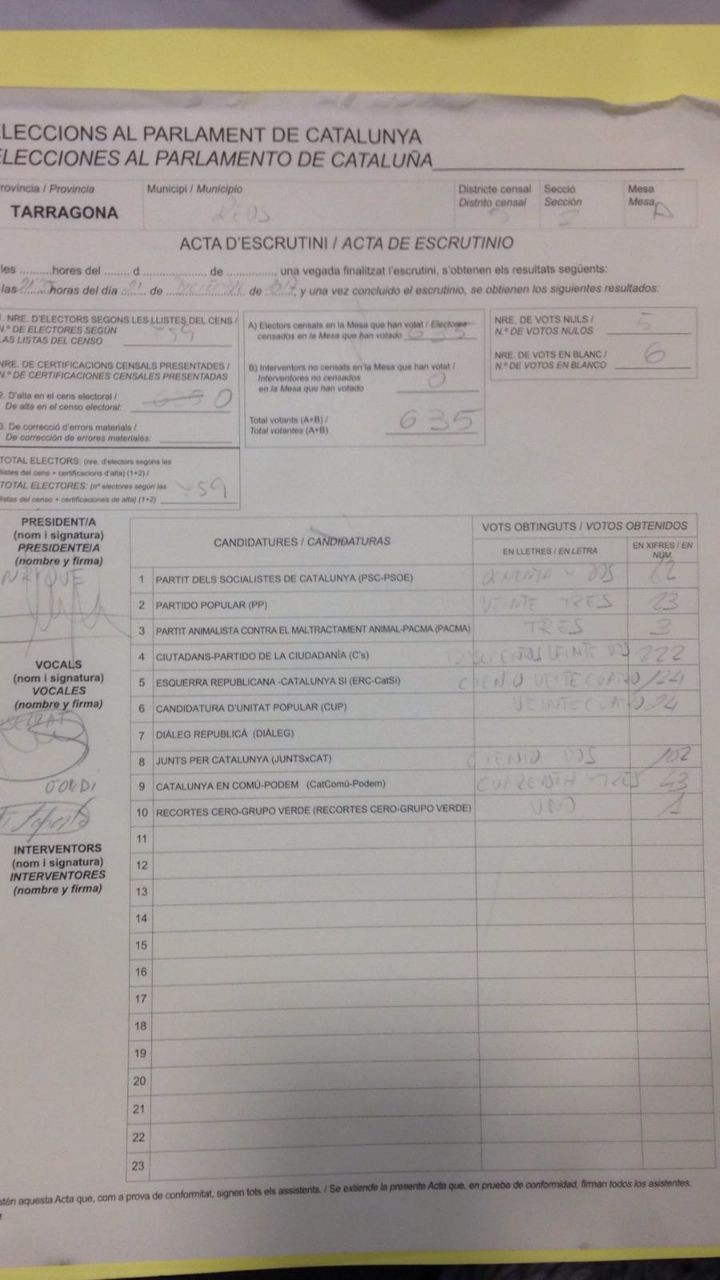 LECCIONS AL PARLAMENT DE CATALUNYA
LECCIONES AL PARLAMENTO DE CATALUÑA
rovíncia / Provincia
TARRAGONA
Municipi / Municipio
REUS
Districte censal
Distrito censal
Secció
Sección
2
Mesa
Mesa
A
ACTA D'ESCRUTINI / ACTA DE ESCRUTINIO
les ..........hores del ........ d .................... de ..............., una vegada finalitzat l'escrutini, s'obtenen els resultats següents:
las horas del día 21 de DICIEMBRE de y una vez concluido el escrutinio, se obtienen los siguientes resultados:
1. NRE. D'ELECTORS SEGONS LES LLISTES DEL CENS /
N.º DE ELECTORES SEGÚN
LAS LISTAS DEL CENSO 759
NRE. DE CERTIFICACIONS CENSALS PRESENTADES /
N.º DE CERTIFICACIONES CENSALES PRESENTADAS
2. D'alta en el cens electoral /
De alta en el censo electoral: 0
3. De correcció d'errors materials /
De corrección de errores materiales:
TOTAL ELECTORS: (nre. d'electors segons les
llistes del cens + certificacions d'alta) (1+2) /
TOTAL ELECTORES: (nº electores según las
listas del censo + certificaciones de alta) (1+2) 759
A) Electors censats en la Mesa que han votat / Electores
censados en la Mesa que han votado 635
B) Interventors no censats en la Mesa que han votat /
Interventores no censados
en la Mesa que han votado 0
Total votants (A+B) /
Total votantes (A+B) 635
NRE. DE VOTS NULS /
N.º DE VOTOS NULOS 5
NRE. DE VOTS EN BLANC /
N.º DE VOTOS EN BLANCO 6
PRESIDENT/A
(nom i signatura)
PRESIDENTE/A
(nombre y firma)
VOCALS
(nom i signatura)
VOCALES
(nombre y firma)
JORDI
INTERVENTORS
(nom i signatura)
INTERVENTORES
(nombre y firma)
CANDIDATURES / CANDIDATURAS
VOTS OBTINGUTS / VOTOS OBTENIDOS
EN LLETRES / EN LETRA
EN XIFRES / EN NÚM.
1 PARTIT DELS SOCIALISTES DE CATALUNYA (PSC-PSOE) OCHENTA Y DOS 82
2 PARTIDO POPULAR (PP) VEINTE TRES 23
3 PARTIT ANIMALISTA CONTRA EL MALTRACTAMENT ANIMAL-PACMA (PACMA) TRES 3
4 CIUTADANS-PARTIDO DE LA CIUDADANÍA (C's) VEINTE DOS 222
5 ESQUERRA REPUBLICANA -CATALUNYA SI (ERC-CatSí) 124
6 CANDIDATURA D'UNITAT POPULAR (CUP) VEINTECUATRO 24
7 DIÀLEG REPUBLICÀ (DIÀLEG)
8 JUNTS PER CATALUNYA (JUNTSxCAT) CIENTO DOS 102
9 CATALUNYA EN COMÚ-PODEM (CatComú-Podem) 43
10 RECORTES CERO-GRUPO VERDE (RECORTES CERO-GRUPO VERDE) UNO 1
11
12
13
14
15
16
17
18
19
20
21
22
23
stén aquesta Acta que, com a prova de conformitat, signen tots els assistents. / Se extiende la presente Acta que, en prueba de conformidad, firman todos los asistentes.